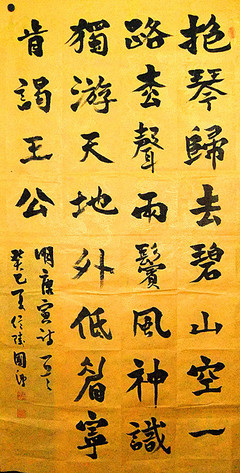 抱琴歸去碧山空一
路松聲兩鬢風神識
獨游天地外低眉寧
肯謁王公
明唐寅诗
癸巳夏